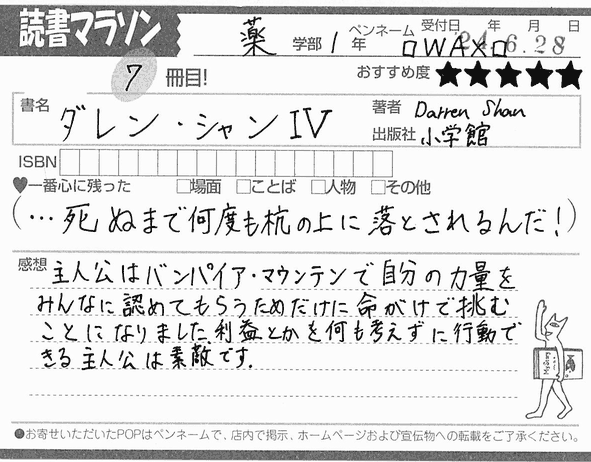 読書マラソン
薬 学部 1 年 ペンネーム ㅁWAXㅁ 受付日 年 月 日
24.6.28
7 冊目! おすすめ度 ★★★★★
書名 ダレン・シャンⅣ
著者 Darren Shan
出版社 小学館
ISBN
♥一番心に残った □場面 □ことば □人物 □その他
(…死ぬまで何度も杭の上に落とされるんだ!)
感想 主人公はバンパイア・マウンテンで自分の力量を
みんなに認めてもらうためだけに命がけで挑む
ことになりました。利益とかを何も考えずに行動で
きる主人公は素敵です.
●お寄せいただいたPOPはペンネームで、店内で掲示、ホームページおよび宣伝物への転載をご了承ください。